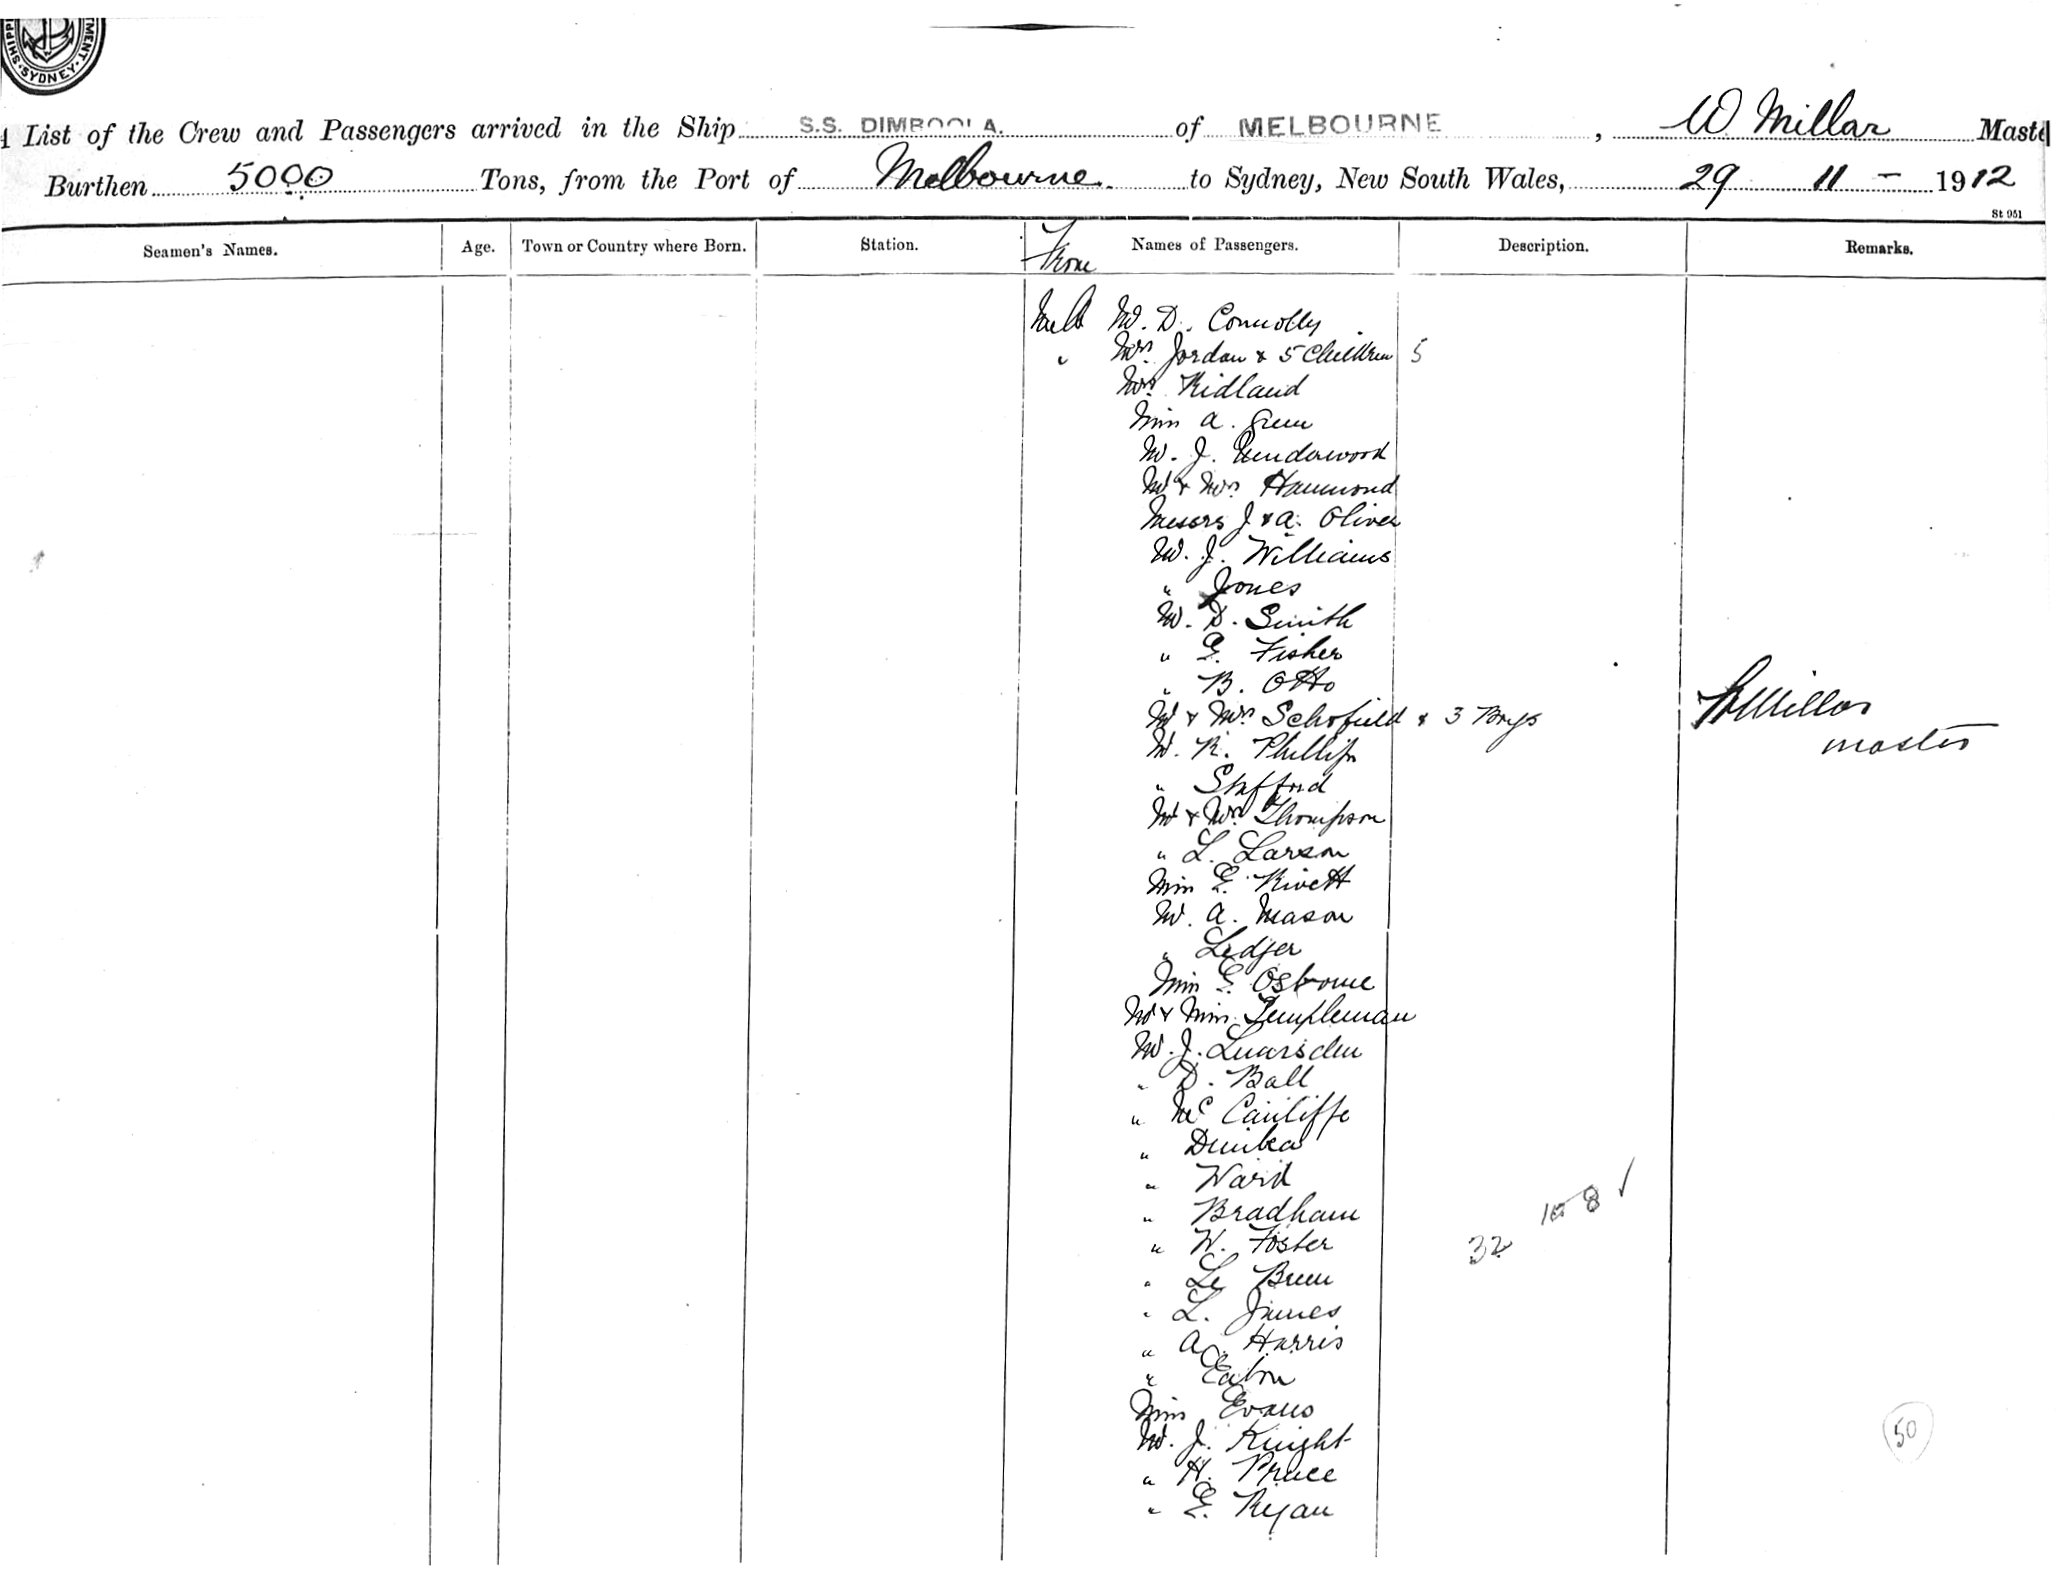 SHIPP
SYDNEY
MENT
A List of the Crew and Passengers arrived in the Ship S.S. DIMBOOLA. of MELBOURNE, W Millar Maste
Burthen 5000 Tons, from the Port of Melbourne to Sydney, New South Wales, 29 11 - 1912
St 951
Seamen's Names. Age. Town or Country where Born. Station. From Names of Passengers. Description. Remarks.
Melb Mr. D. Connolly
" Mrs Jordan & 5 Children 5
Mrs Kidland
Miss A. Green
Mr. J. Underwood
Mr & Mrs Hammond
Messrs J & A. Oliver
Mr. J. Williams
" Jones
Mr. D. Smith
" G. Fisher
" B. Otto
Mr & Mrs Schofield & 3 Boys
WMillar
master
Mr. R. Phillips
" Stafford
Mr & Mrs Thompson
" L. Larson
Miss E. Rivett
Mr. A. Mason
" Ledger
Miss E. Osborne
Mr & Miss Templeman
Mr. J.
" D. Ball
" Mc Cauliffe
"
" Ward
" Bradham
" W. Foster
" Le Brun
" L. James
" A. Harris
" Eaton
Miss Evans
Mr. J. Knight
" H. Pruce
" E. Ryan
8 ✓
32
50